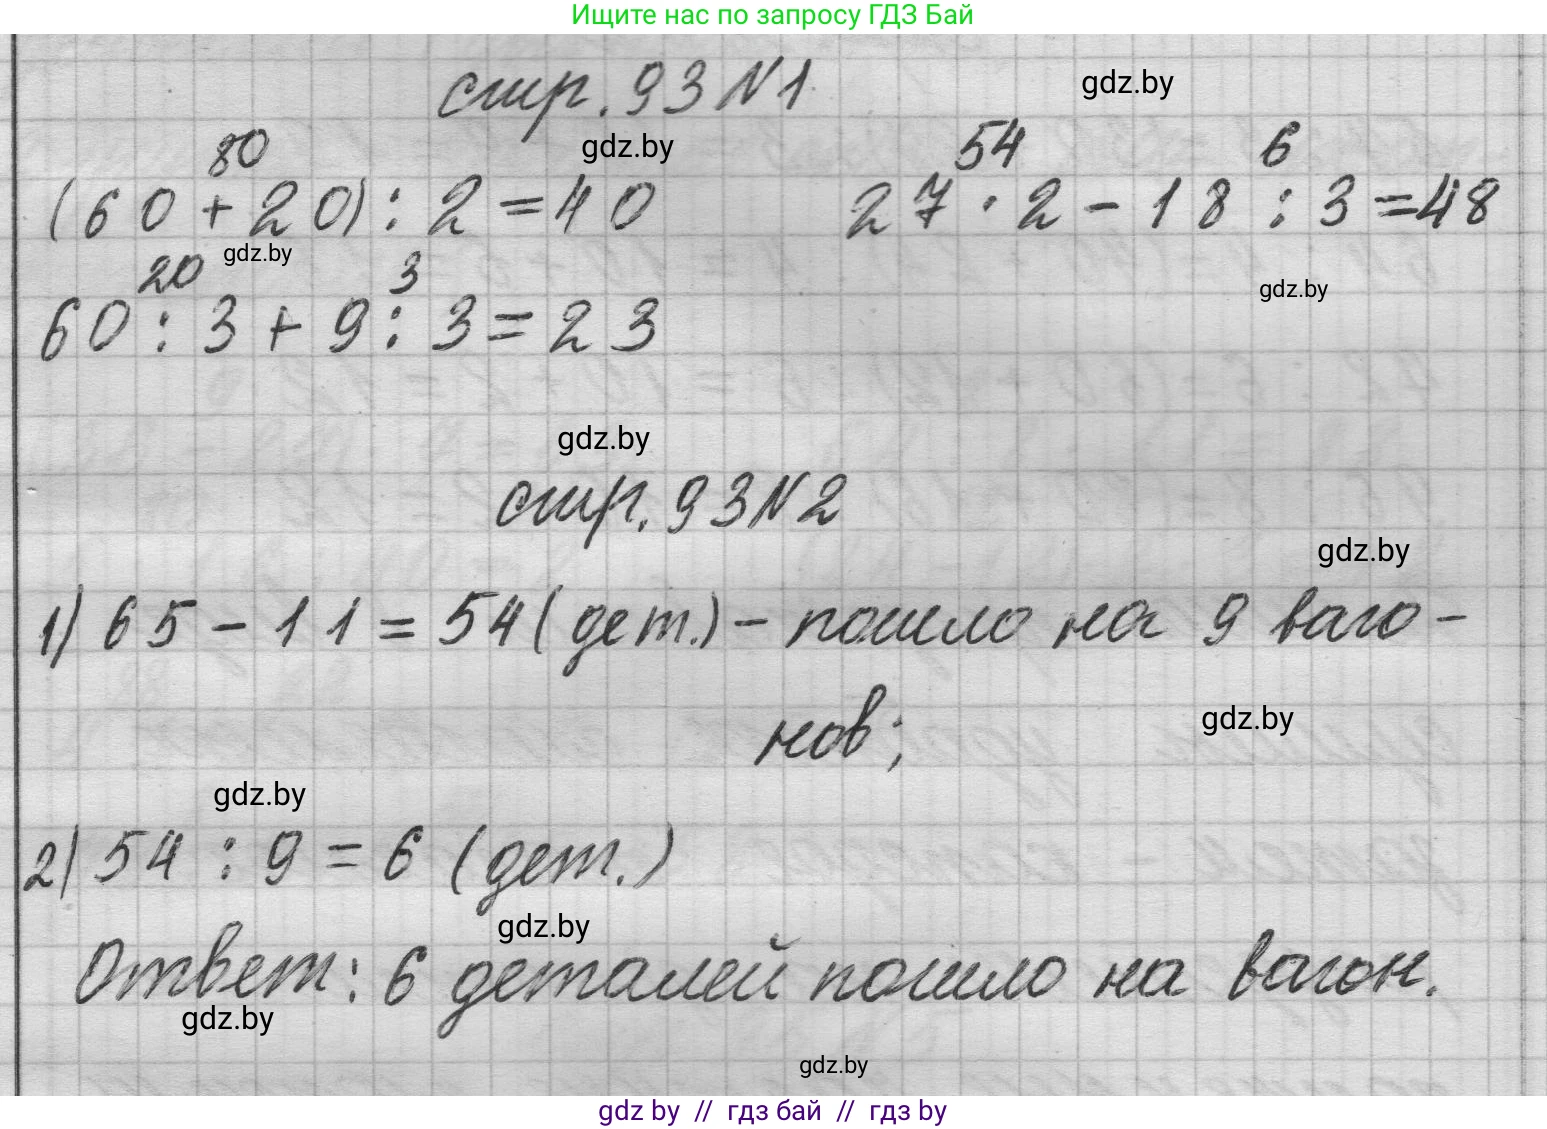 Ищите нас по запросу ГДЗ Бай
стр. 93 N 1
gdz.by
gdz.by
80
54
6
(60+20):2=40
27·2-18:3=48
gdz.by
20
3
gdz.by
60:3+9:3=23
gdz.by
стр. 93 N 2
gdz.by
1) 65-11=54(дет.)- пошло на 9 ваго-
нов;
gdz.by
gdz.by
2) 54:9=6 (дет.)
gdz.by
Ответ: 6 деталей пошло на вагон.
gdz.by
gdz.by
gdz by // гдз бай // гдз by